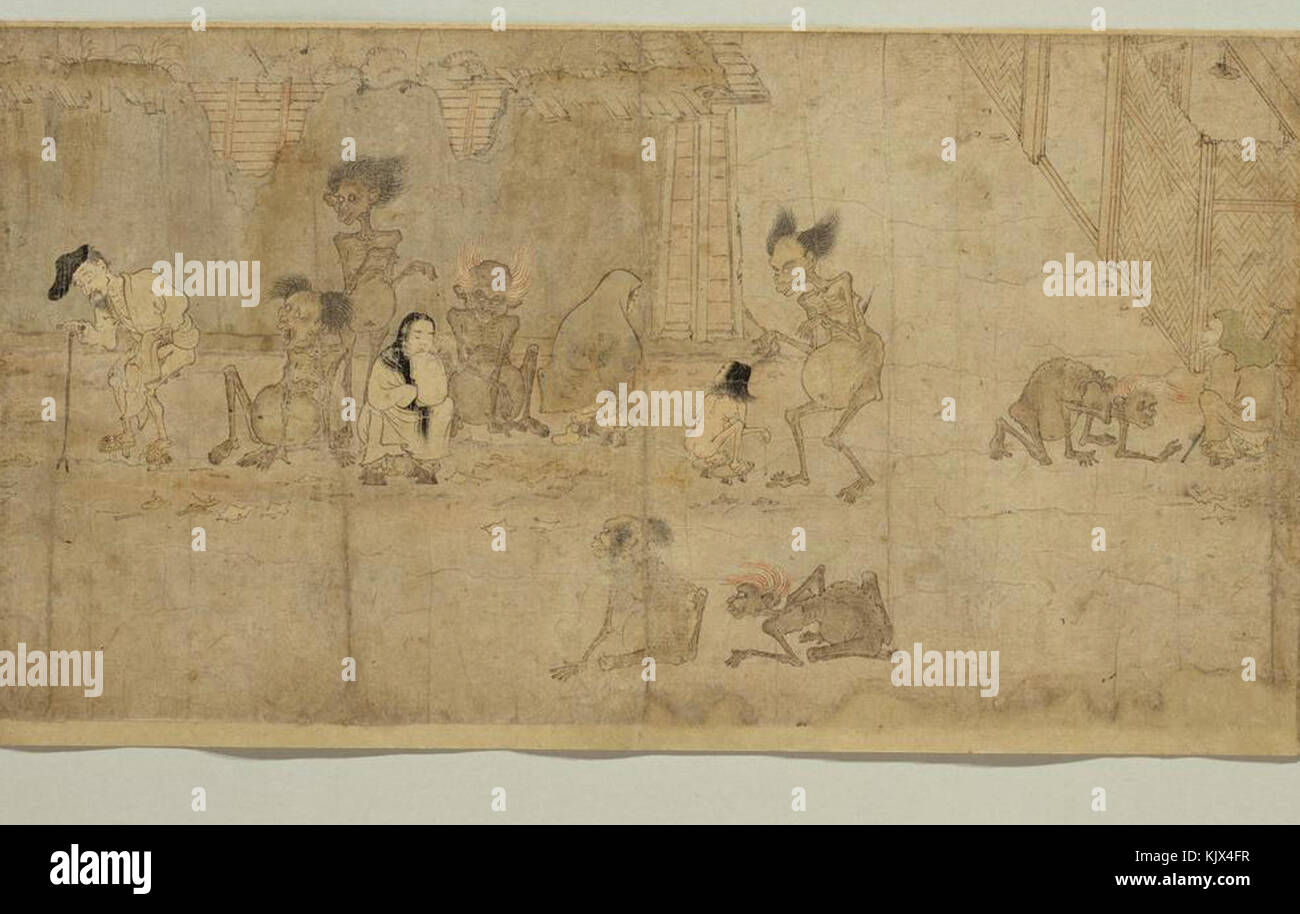 alamy
alamy
alamy
alamy
alamy
alamy
alamy
Image ID: KJX4FR
www.alamy.com